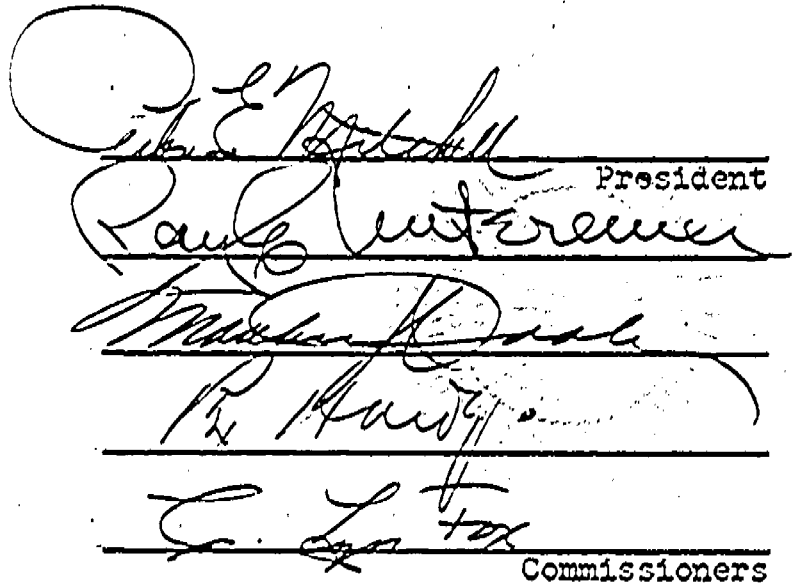 Peter E. Mitchell
President
Paul Untereiner
Matthew J. Dooley
Rex Hardy
C. Lyn Fox
Commissioners